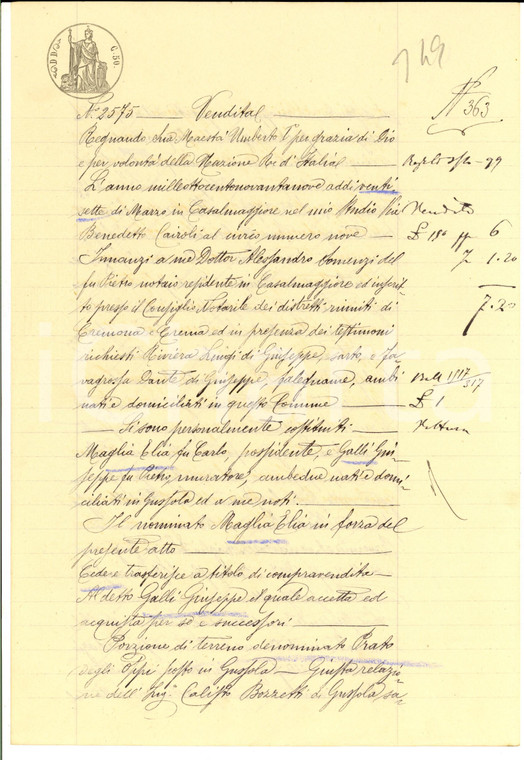 C. 50.
149
N° 363
N.° 2575 Vendita
Regnando Sua Maestà Umberto I° per grazia di Dio
e per volontà della Nazione Re d'Italia
L'anno milleottocentonovantanove addì venti
sette di Marzo in Casalmaggiore nel mio Studio Via
Benedetto Cairoli al civico numero nove
6
Innanzi a me Dottor Alessandro Comenzi del
1.20
fu Pietro notaio residente in Casalmaggiore ed inscrit
to presso il Consiglio Notarile dei distretti riuniti di
7.20
Cremona e Crema ed in presenza dei testimoni
richiesti Riviera Luigi di Giuseppe, sarto, e Fa
vagrossa Dante di Giuseppe, falegname, ambi
nati e domiciliati in questo Comune
£ 1
Si sono personalmente costituiti
Maglia Elia fu Carlo, possidente, e Galli Giu
seppe fu Pietro, muratore, ambedue nati e domi
ciliati in Gussola ed a me noti.
Il nominato Maglia Elia in forza del
presente atto
Cede e trasferisce a titolo di compravendita
Al detto Galli Giuseppe il quale accetta ed
acquista per sé e successori
Porzione di terreno denominato Prato
degli Pissi posto in Gussola Giusta relazio
ne dell'Ing.r Calisto Bozzetti di Gussola, sa